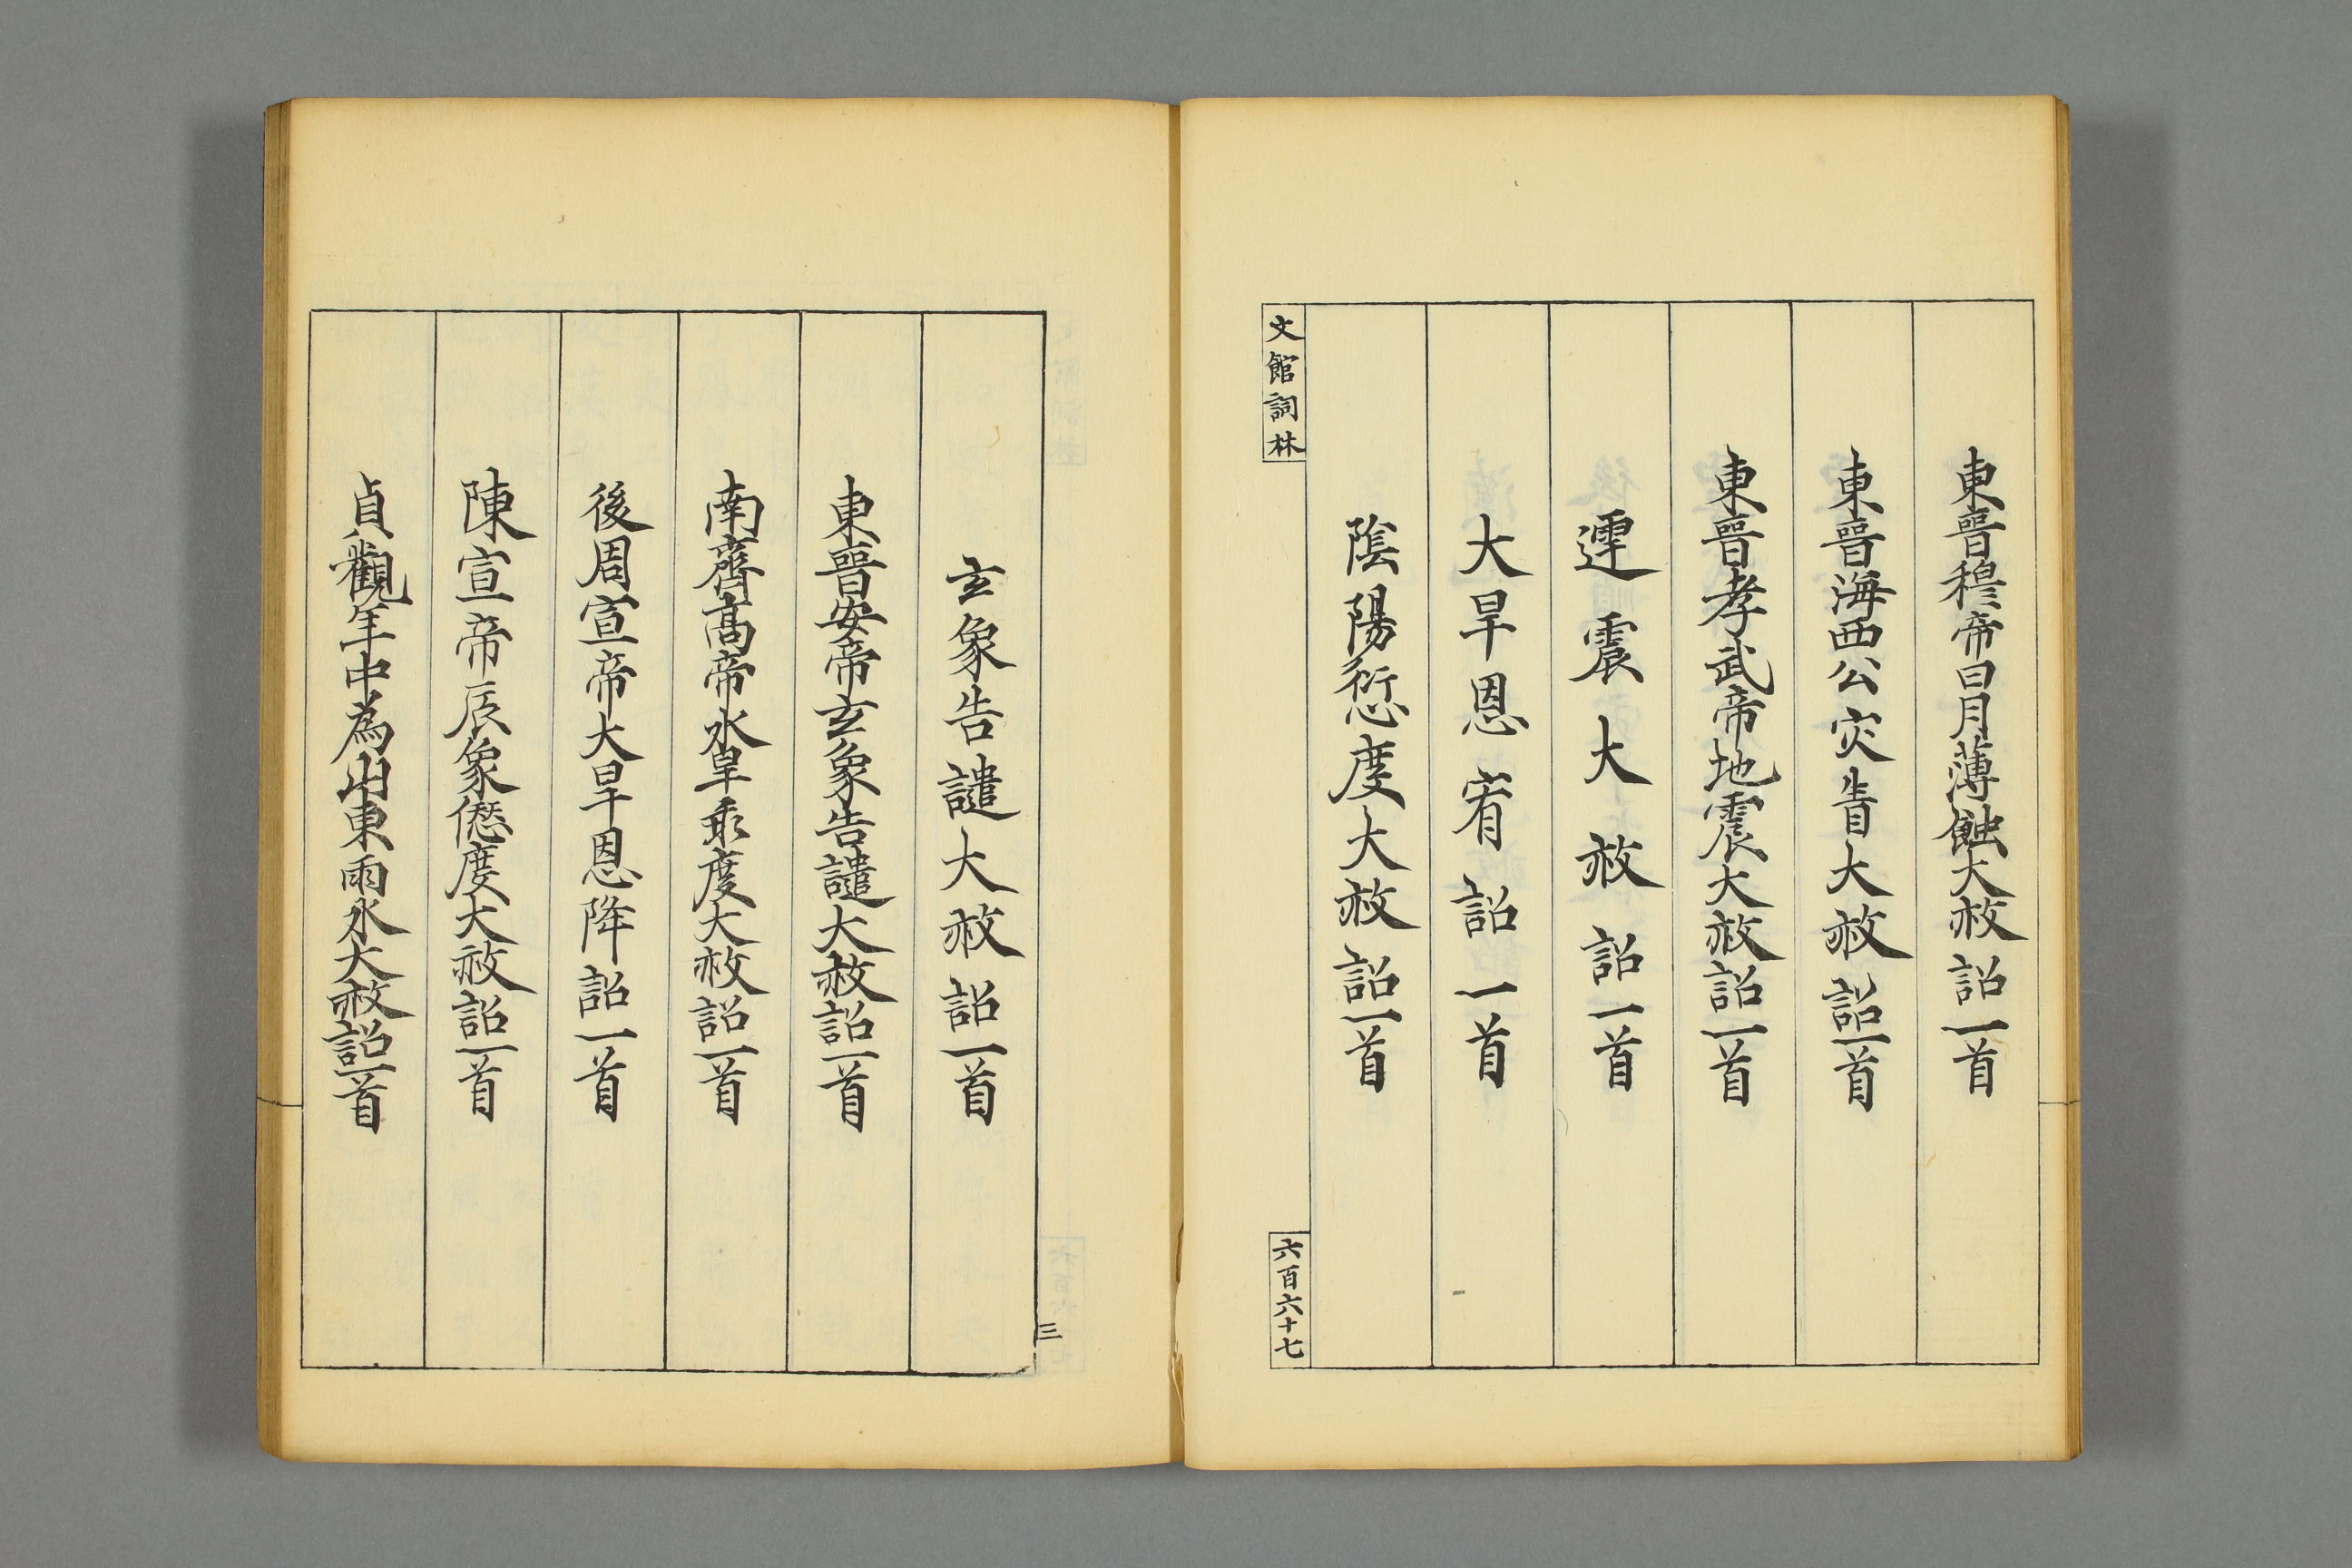 東晉穆帝日月薄蝕大赦詔一首
東晉海西公灾眚大赦詔一首
東晉孝武帝地震大赦詔一首
霆震大赦詔一首
大旱恩宥詔一首
陰陽愆度大赦詔一首
文館詞林
六百六十七
玄象告譴大赦詔一首
東晉安帝玄象告譴大赦詔一首
南齊高帝水旱乖度大赦詔一首
後周宣帝大旱恩降詔一首
陳宣帝辰象愆度大赦詔一首
貞觀年中為山東雨水大赦詔一首
三